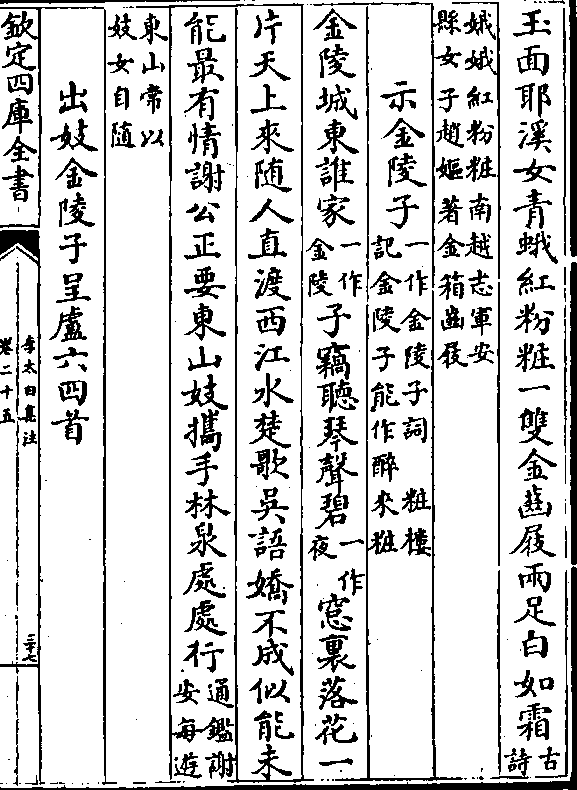 玉面耶溪女青蛾紅粉粧一雙金齒屐兩足白如霜古詩
娥娥紅粉粧南越志軍安
縣女子趙嫗著金箱齒屐
示金陵子一作金陵子詞 粧樓
記金陵子能作醉來粧
金陵城東誰家一作金陵子竊聽琴聲碧一作夜窓裏落花一
片天上來随人直渡西江水楚歌吳語嬌不成似能未
能最有情謝公正要東山妓攜手林泉處處行通鑑謝安每遊
東山常以
妓女自随
出妓金陵子呈盧六四首
欽定四庫全書
李太白集注
卷二十五
三十七